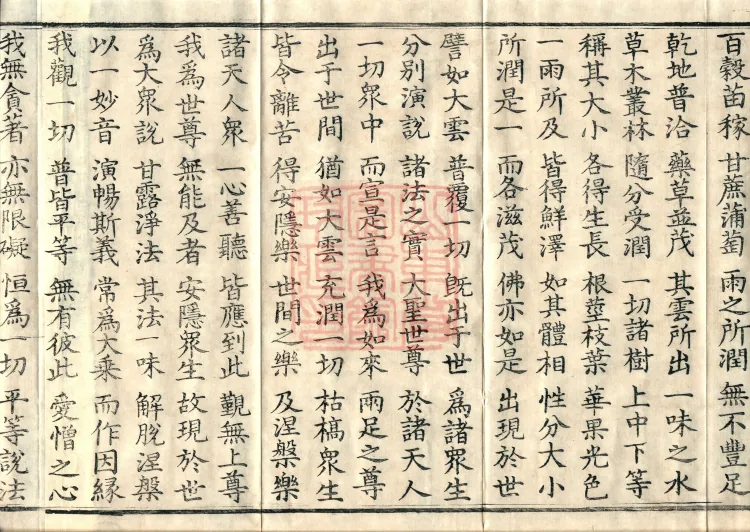 百穀苗稼 甘蔗蒲萄 雨之所潤 無不豐足
乾地普洽 藥草並茂 其雲所出 一味之水
草木叢林 隨分受潤 一切諸樹 上中下等
稱其大小 各得生長 根莖枝葉 華果光色
一雨所及 皆得鮮澤 如其體相 性分大小
所潤是一 而各滋茂 佛亦如是 出現於世
譬如大雲 普覆一切 旣出于世 爲諸眾生
分別演說 諸法之實 大聖世尊 於諸天人
一切眾中 而宣是言 我爲如來 兩足之尊
出于世間 猶如大雲 充潤一切 枯槁眾生
皆令離苦 得安隱樂 世間之樂 及涅槃樂
諸天人眾 一心善聽 皆應到此 覲無上尊
我爲世尊 無能及者 安隱眾生 故現於世
爲大眾說 甘露淨法 其法一味 解脫涅槃
以一妙音 演暢斯義 常爲大乘 而作因緣
我觀一切 普皆平等 無有彼此 愛憎之心
我無貪著 亦無限礙 恒爲一切 平等說法